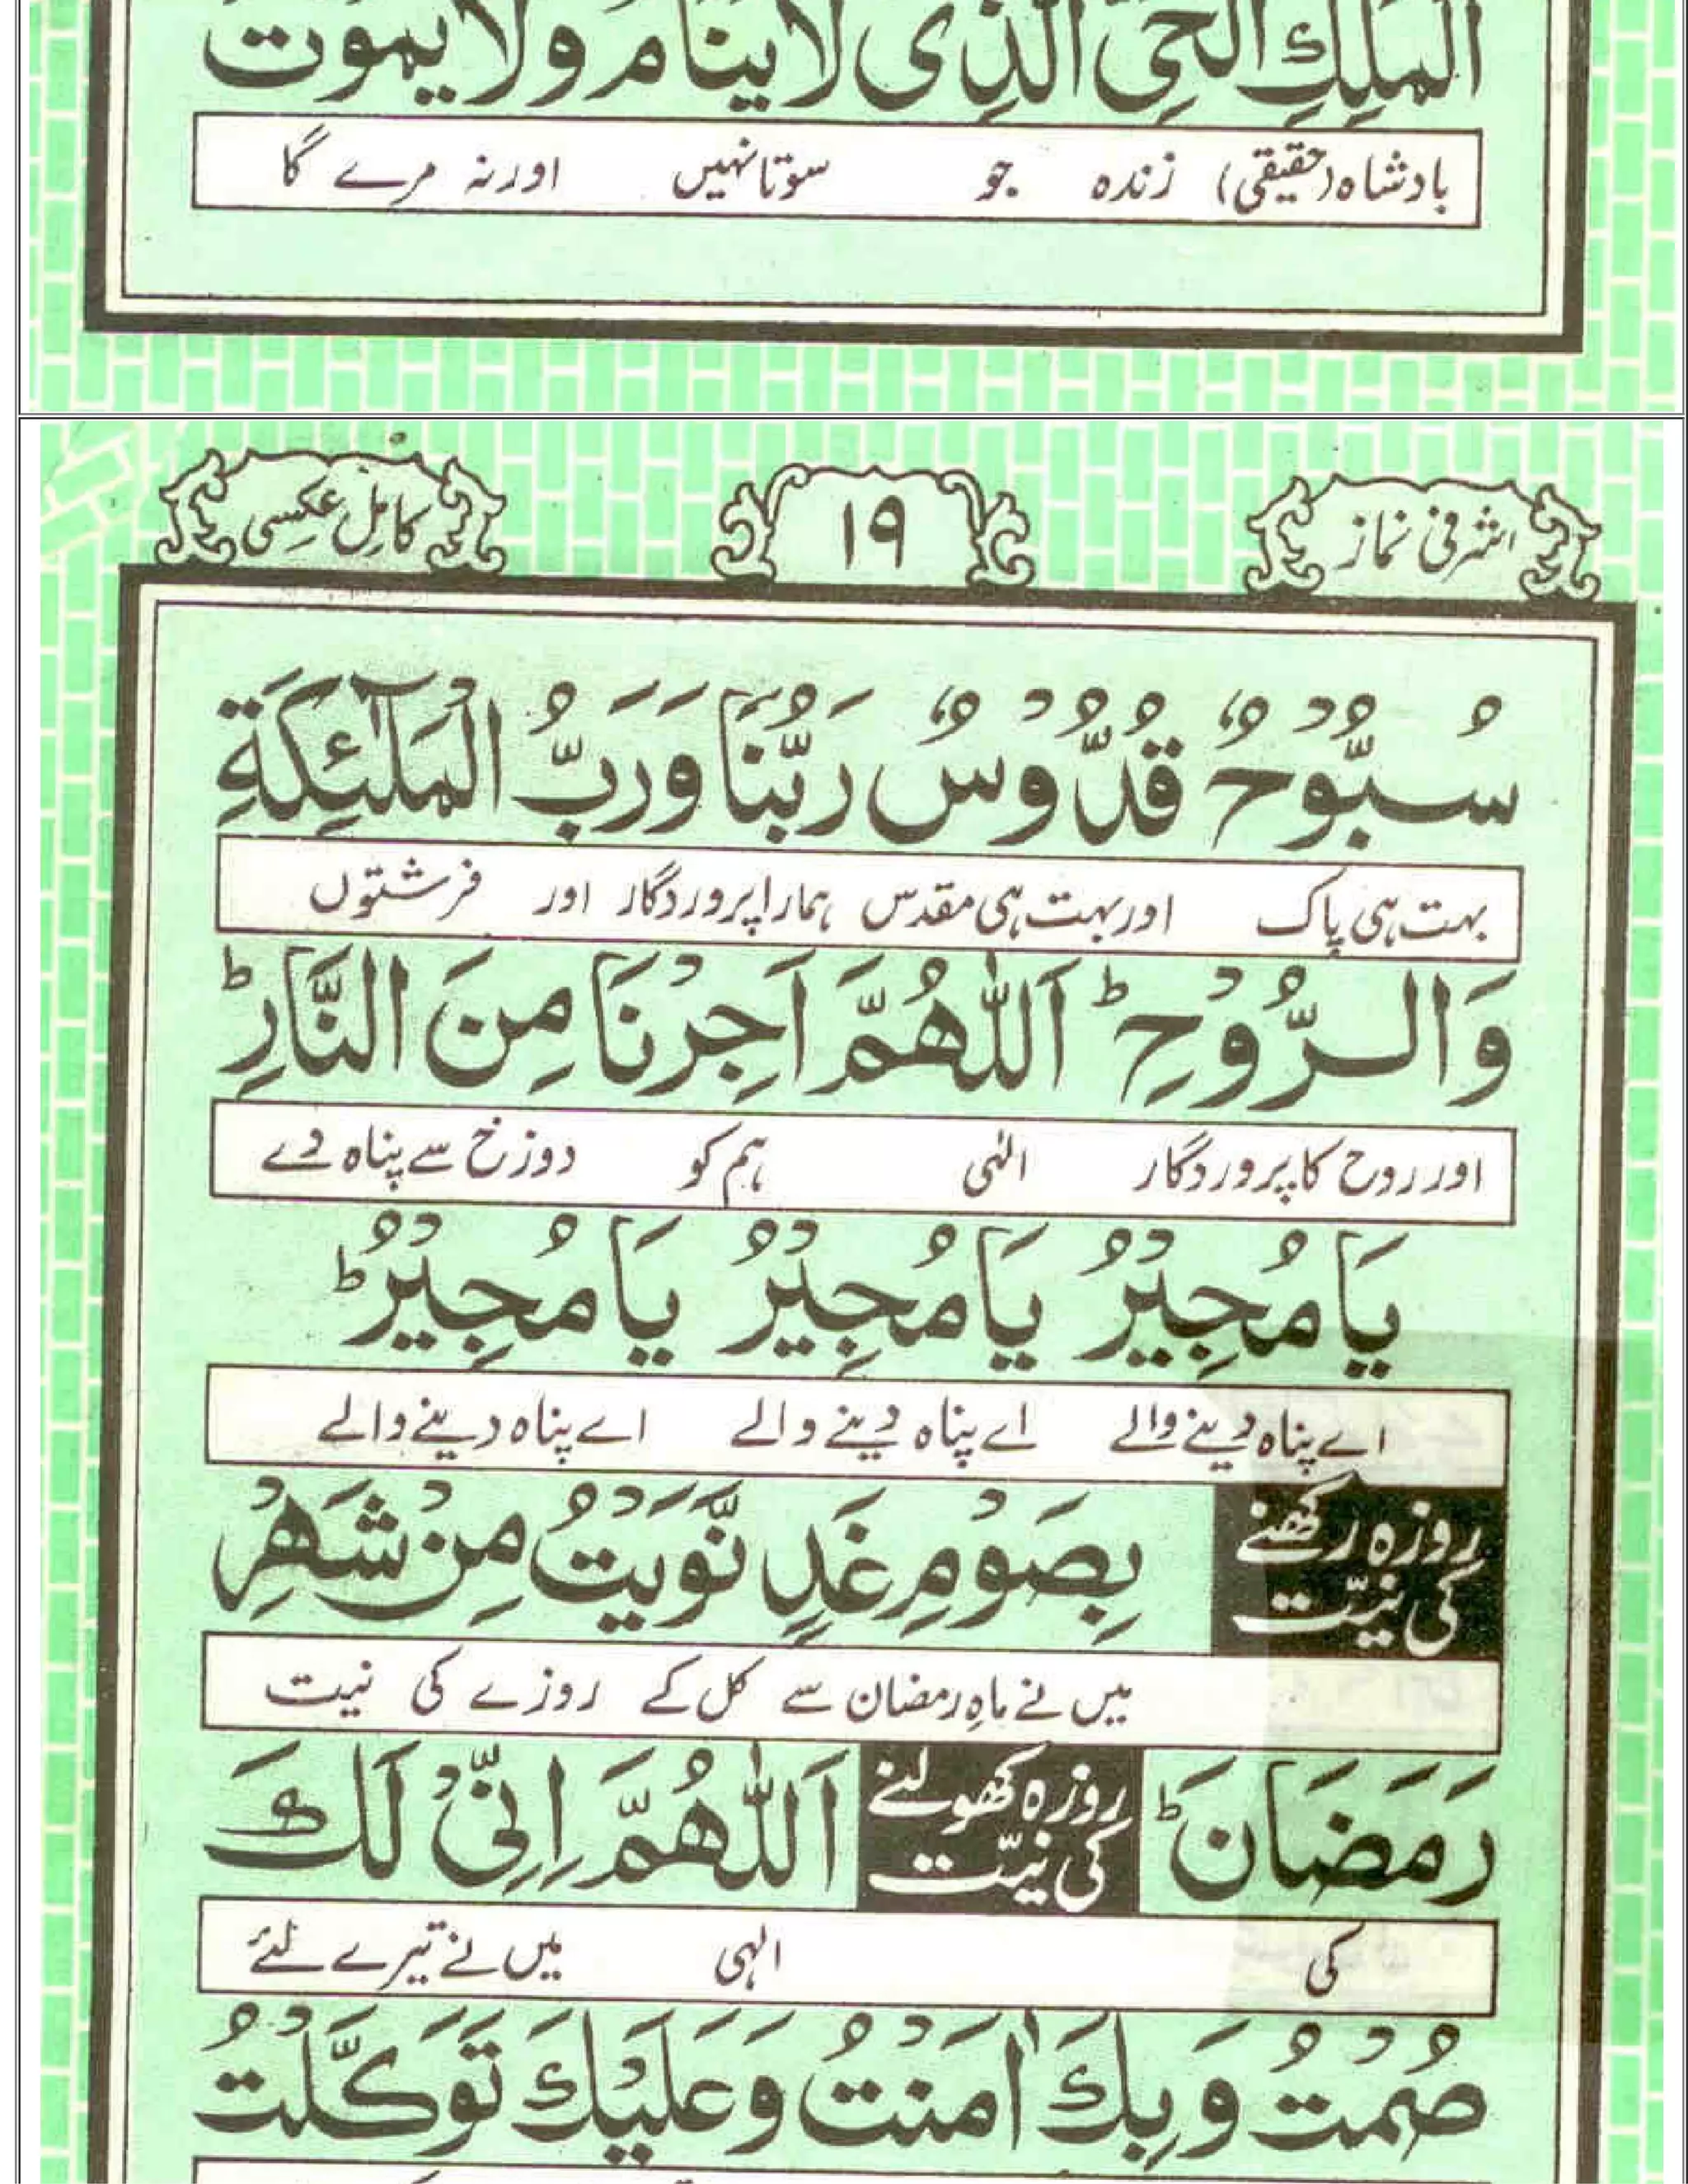 الْمَلِكِ الْحَيِّ الَّذِی لَا یَنَامُ وَلَا یَمُوْتُ
بادشاہ (حقیقی) زندہ جو سوتا نہیں اور نہ مرے گا
اشرفی نماز ۱۹ کامِل عکسِی
سُبُّوْحٌ قُدُّوْسٌ رَبُّنَا وَرَبُّ الْمَلٰٓئِكَةِ
بہت ہی پاک اور بہت ہی مقدس ہمارا پروردگار اور فرشتوں
وَالرُّوْحِ ؕ اَللّٰهُمَّ اَجِرْنَا مِنَ النَّارِ ؕ
اور روح کا پروردگار الٰہی ہم کو دوزخ سے پناہ دے
یَا مُجِیْرُ یَا مُجِیْرُ یَا مُجِیْرُ ؕ
اے پناہ دینے والے اے پناہ دینے والے اے پناہ دینے والے
روزہ رکھنے کی نیّت بِصَوْمِ غَدٍ نَّوَیْتُ مِنْ شَهْرِ
میں نے ماہِ رمضان سے کل کے روزے کی نیت
رَمَضَانَ ؕ روزہ کھولنے کی نیّت اَللّٰهُمَّ اِنِّیْ لَكَ
کی الہی میں نے تیرے لئے
صُمْتُ وَبِكَ اٰمَنْتُ وَعَلَیْكَ تَوَكَّلْتُ